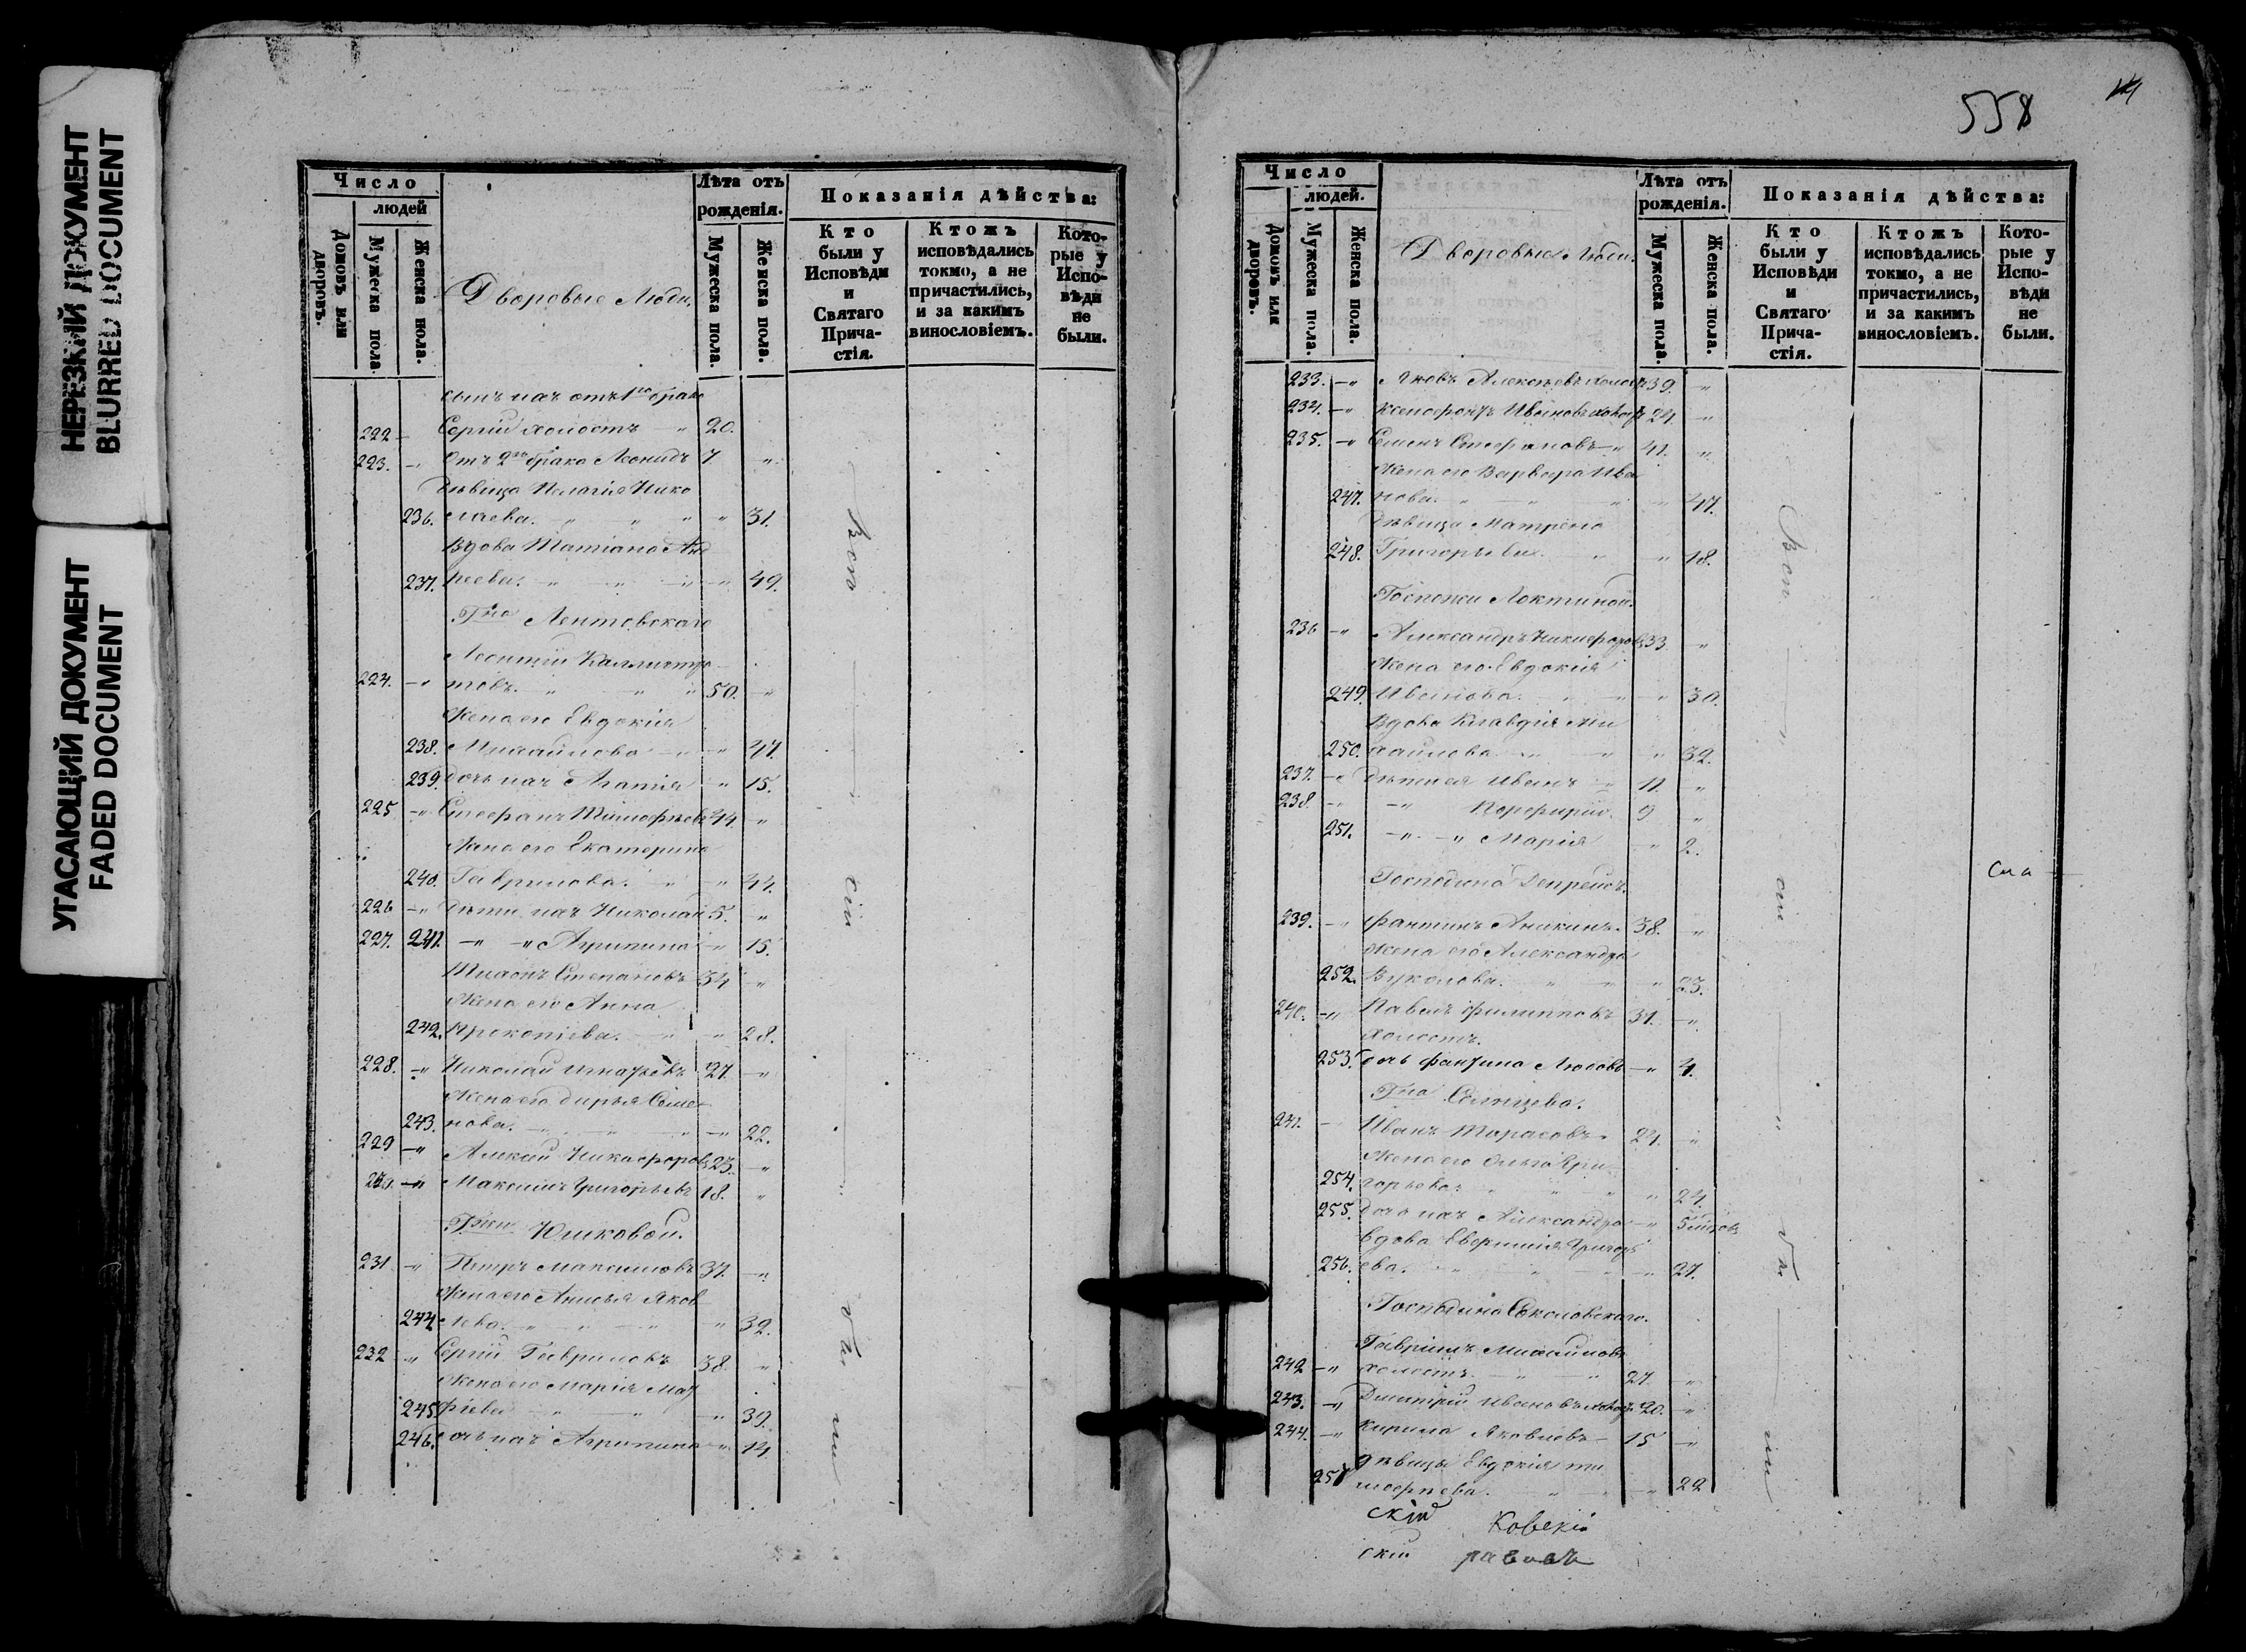 НЕРЕЗКИЙ ДОКУМЕНТ
BLURRED DOCUMENT
УГАСАЮЩИЙ ДОКУМЕНТ
FADED DOCUMENT
Число
людей
Домовъ или дворовъ.
Мужеска пола.
Женска пола.
Дворовые Люди.
Лѣта отъ рожденія.
Мужеска пола.
Женска пола.
Показанія дѣйства:
Кто были у Исповѣди и Святаго Прича-стія.
Ктожъ исповѣдались токмо, а не причастились, и за какимъ винословіемъ.
Кото-рые у Испо-вѣди не были.
сынъ ихъ отъ 1го брака
222 Сергій холостъ 20.
223. Отъ 2го брака Леонидъ 7
Дѣвица Пелагія Нико
236. лаева. 31.
Вдова Татіана Анд
237. реева. 49.
Гна Лентовскаго
Леонтій Каллистра
224. товъ. 50.
Жена его Евдокія
238. Михайлова 47.
239. дочь ихъ Агапія 15.
225 Стефанъ Тимофѣевъ 44.
Жена его Екатерина
240. Гаврилова. 44.
226 Дѣти ихъ Николай 5.
227. 241. Агрипина 15.
Степановъ 34
Жена его Анна
242. Прокопіева. 28.
228. Николай Игнатьевъ 27.
Жена его Дарья Семе
243. нова. 22.
229 Никифоровъ 23.
230. Максимъ Григорьевъ 18.
Гжи Юшковой.
231 Петръ Максимовъ 37.
Жена его Анисья Яков
244 лева. 32.
232 Сергій Гавриловъ 38.
Жена его Марія Мат
245. фіева 39.
246. дочь ихъ Агрипина 14.
558
Число
людей.
Домовъ или дворовъ.
Мужеска пола.
Женска пола.
Дворовые Люди.
Лѣта отъ рожденія.
Мужеска пола.
Женска пола.
Показанія дѣйства:
Кто были у Исповѣди и Святаго Прича-стія.
Ктожъ исповѣдались токмо, а не причастились, и за какимъ винословіемъ.
Кото-рые у Испо-вѣди не были.
233. Яковъ Алексѣевъ холостъ 39.
234. Ксенофонтъ Ивановъ холостъ 24.
235. Семенъ Стефановъ 41.
Жена его Варвара Ива
247. нова. 47.
Дѣвица Матрена
248. Григорьева. 18.
Госпожи Локтиной.
236 Александръ Никифоровъ 33
Жена его Евдокія
249. Иванова. 30.
Вдова Клавдія Ми
250. хайлова 32.
237. Дѣти ея Иванъ 11
238 Порфирій. 9
251. Марія 2.
Господина
239. Фантинъ Аникинъ. 38.
Жена его Александра
252. Вуколова. 23.
240. Павелъ Филипповъ 31.
холостъ.
253. дочь Фантина Любовь 4.
Гна Солнцева.
241. Иванъ Тарасовъ 24.
Жена его Ольга Гри
254. горьева. 24.
255. дочь ихъ Александра
Вдова Евфимія Григорь
256. ева. 27.
Господина Соколовскаго.
Гавріилъ Михайловъ
242 холостъ. 27.
243. Дмитрій Ивановъ холостъ 20.
244. Кирила Яковлевъ 15
дѣвица Евдокія Ти
257 мофеева. 22
скій
скій